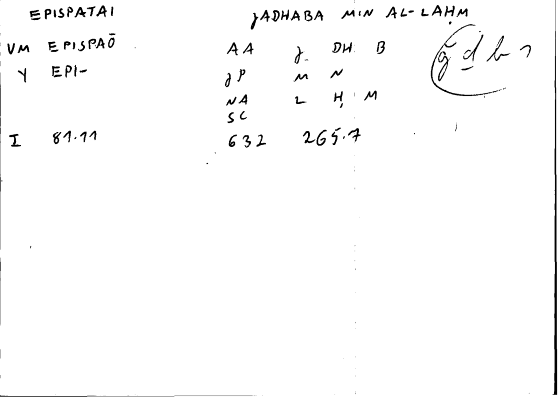 EPISPATAI JADHABA MIN AL-LAḤM
VM EPISPAŌ AA J DH B ǧ ḏ b
Y EPI- JP M N
NA L Ḥ M
SC
I 81.11 632 265.7